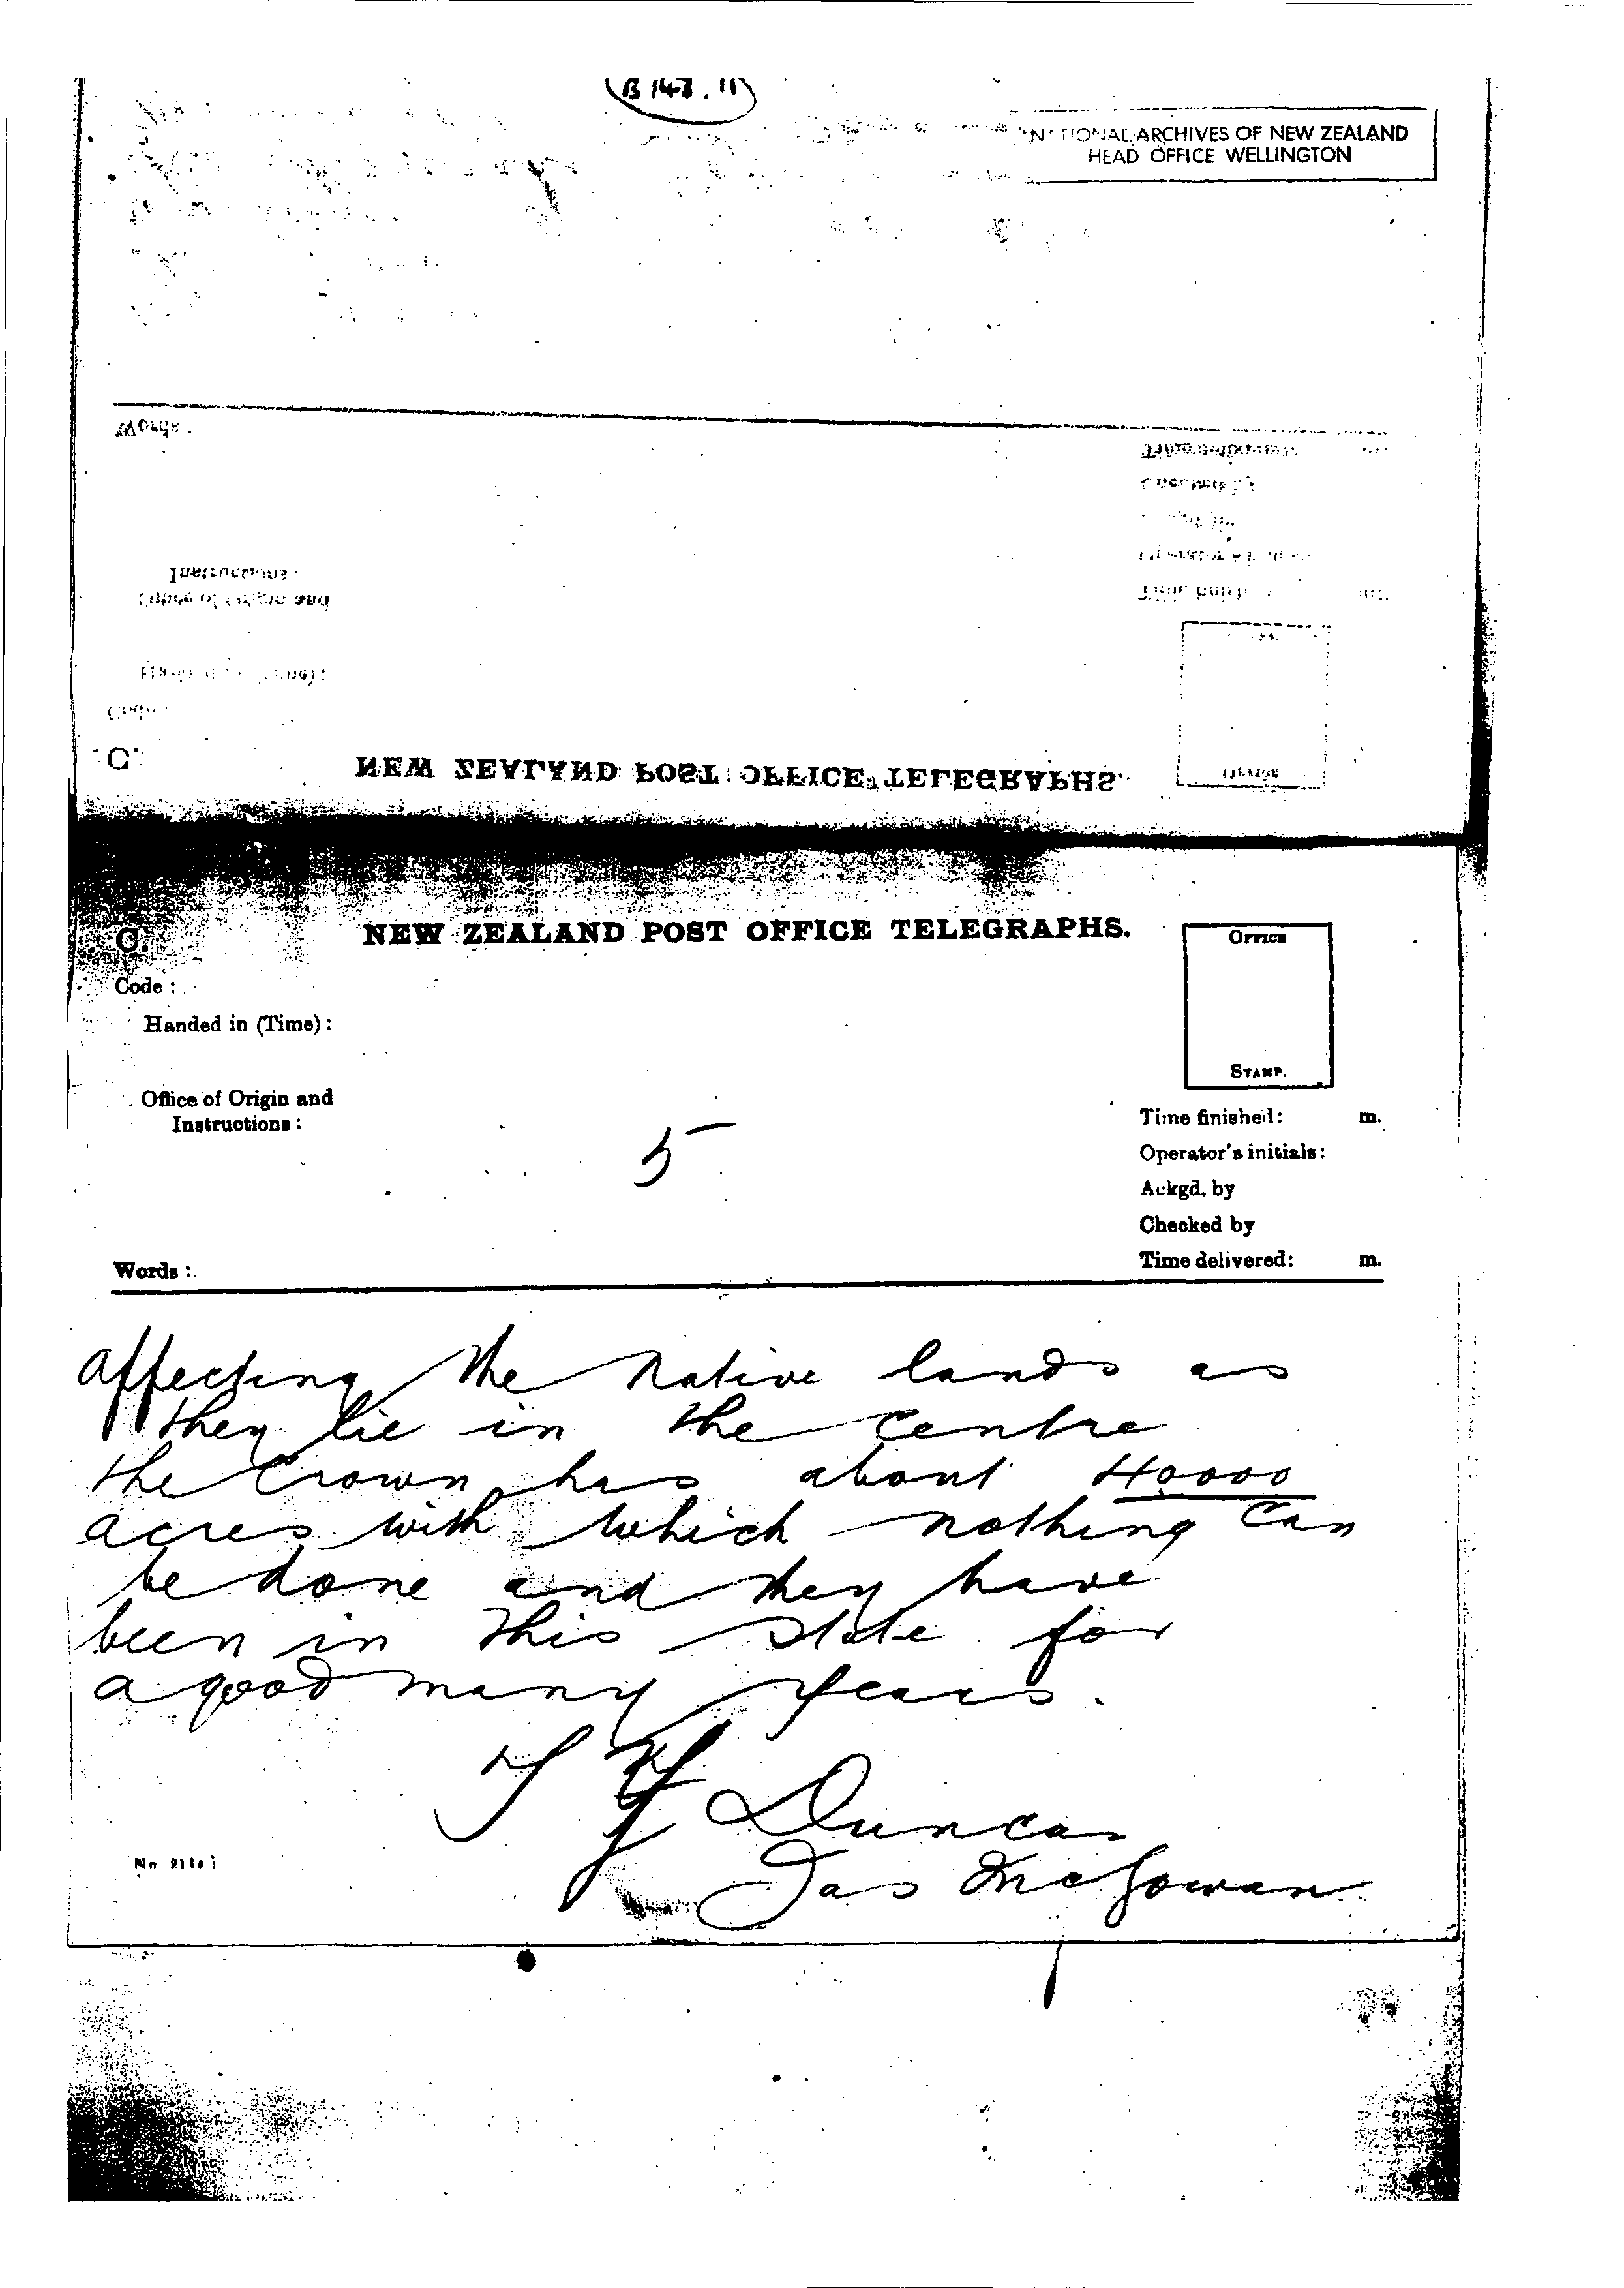 (B 143.11)
NATIONAL ARCHIVES OF NEW ZEALAND
HEAD OFFICE WELLINGTON
Words
Instructions:
Office of Origin and
C.
NEW ZEALAND POST OFFICE TELEGRAPHS.
C.
NEW ZEALAND POST OFFICE TELEGRAPHS.
OFFICE
STAMP.
Code :
Handed in (Time) :
Office of Origin and
Instructions :
5
Time finished: m.
Operator's initials:
Ackgd. by
Checked by
Time delivered: m.
Words :
affecting the Native lands as
they lie in the centre
the Crown has about 40000
acres with which nothing can
be done and they have
been in this state for
a good many years.
T Y Duncan
Jas McGowan